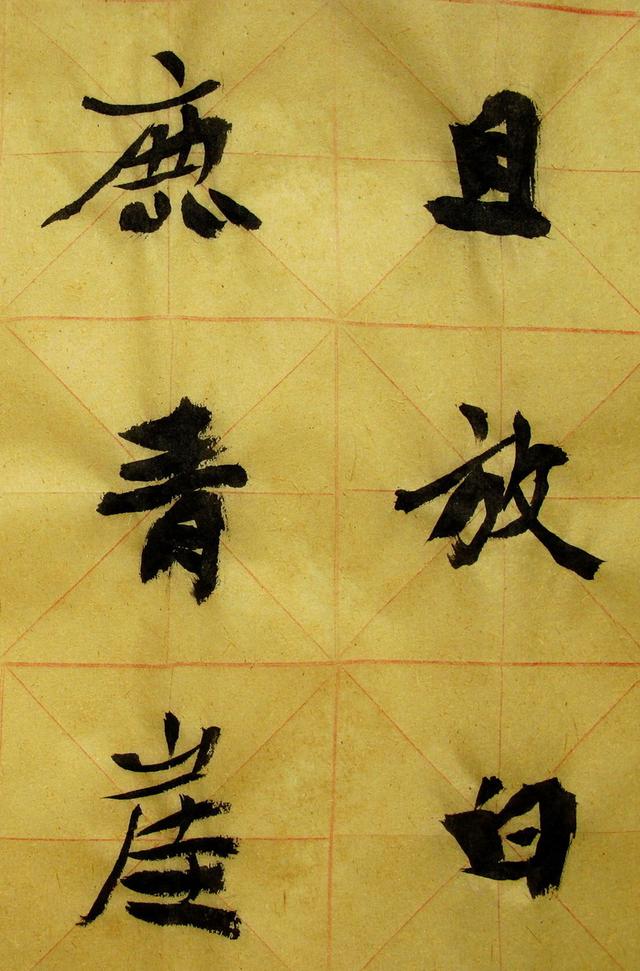 且放白
鹿青崖